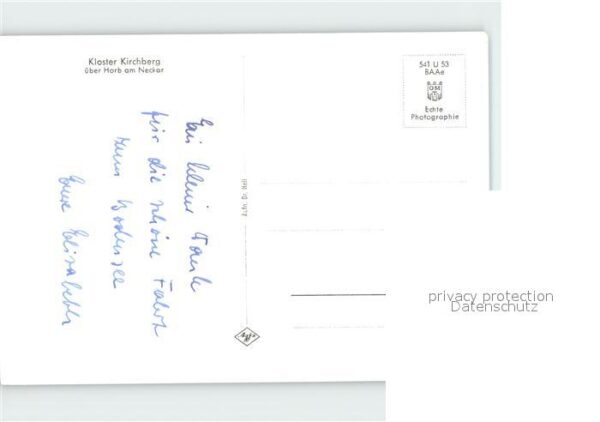 Kloster Kirchberg
über Horb am Neckar
541 U 53
BAAe
Echte
Photographie
Ein kleiner Dank
für die schöne Fahrt
zum Bodensee
Eure Elisabeth
Agfa
privacy protection
Datenschutz